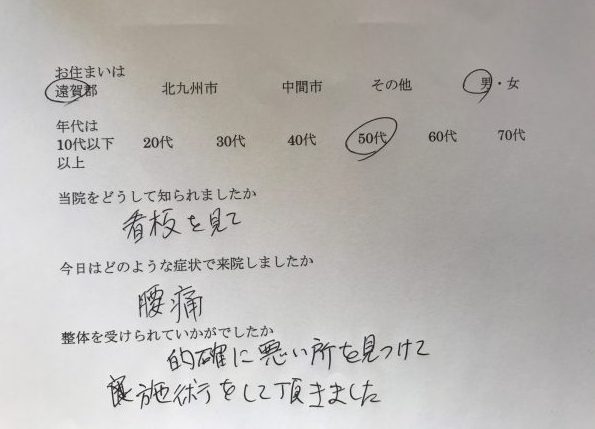 お住まいは
遠賀郡 北九州市 中間市 その他 男・女
年代は
10代以下 20代 30代 40代 50代 60代 70代
以上
当院をどうして知られましたか
看板を見て
今日はどのような症状で来院しましたか
腰痛
整体を受けられていかがでしたか
的確に悪い所を見つけて
施術をして頂きました